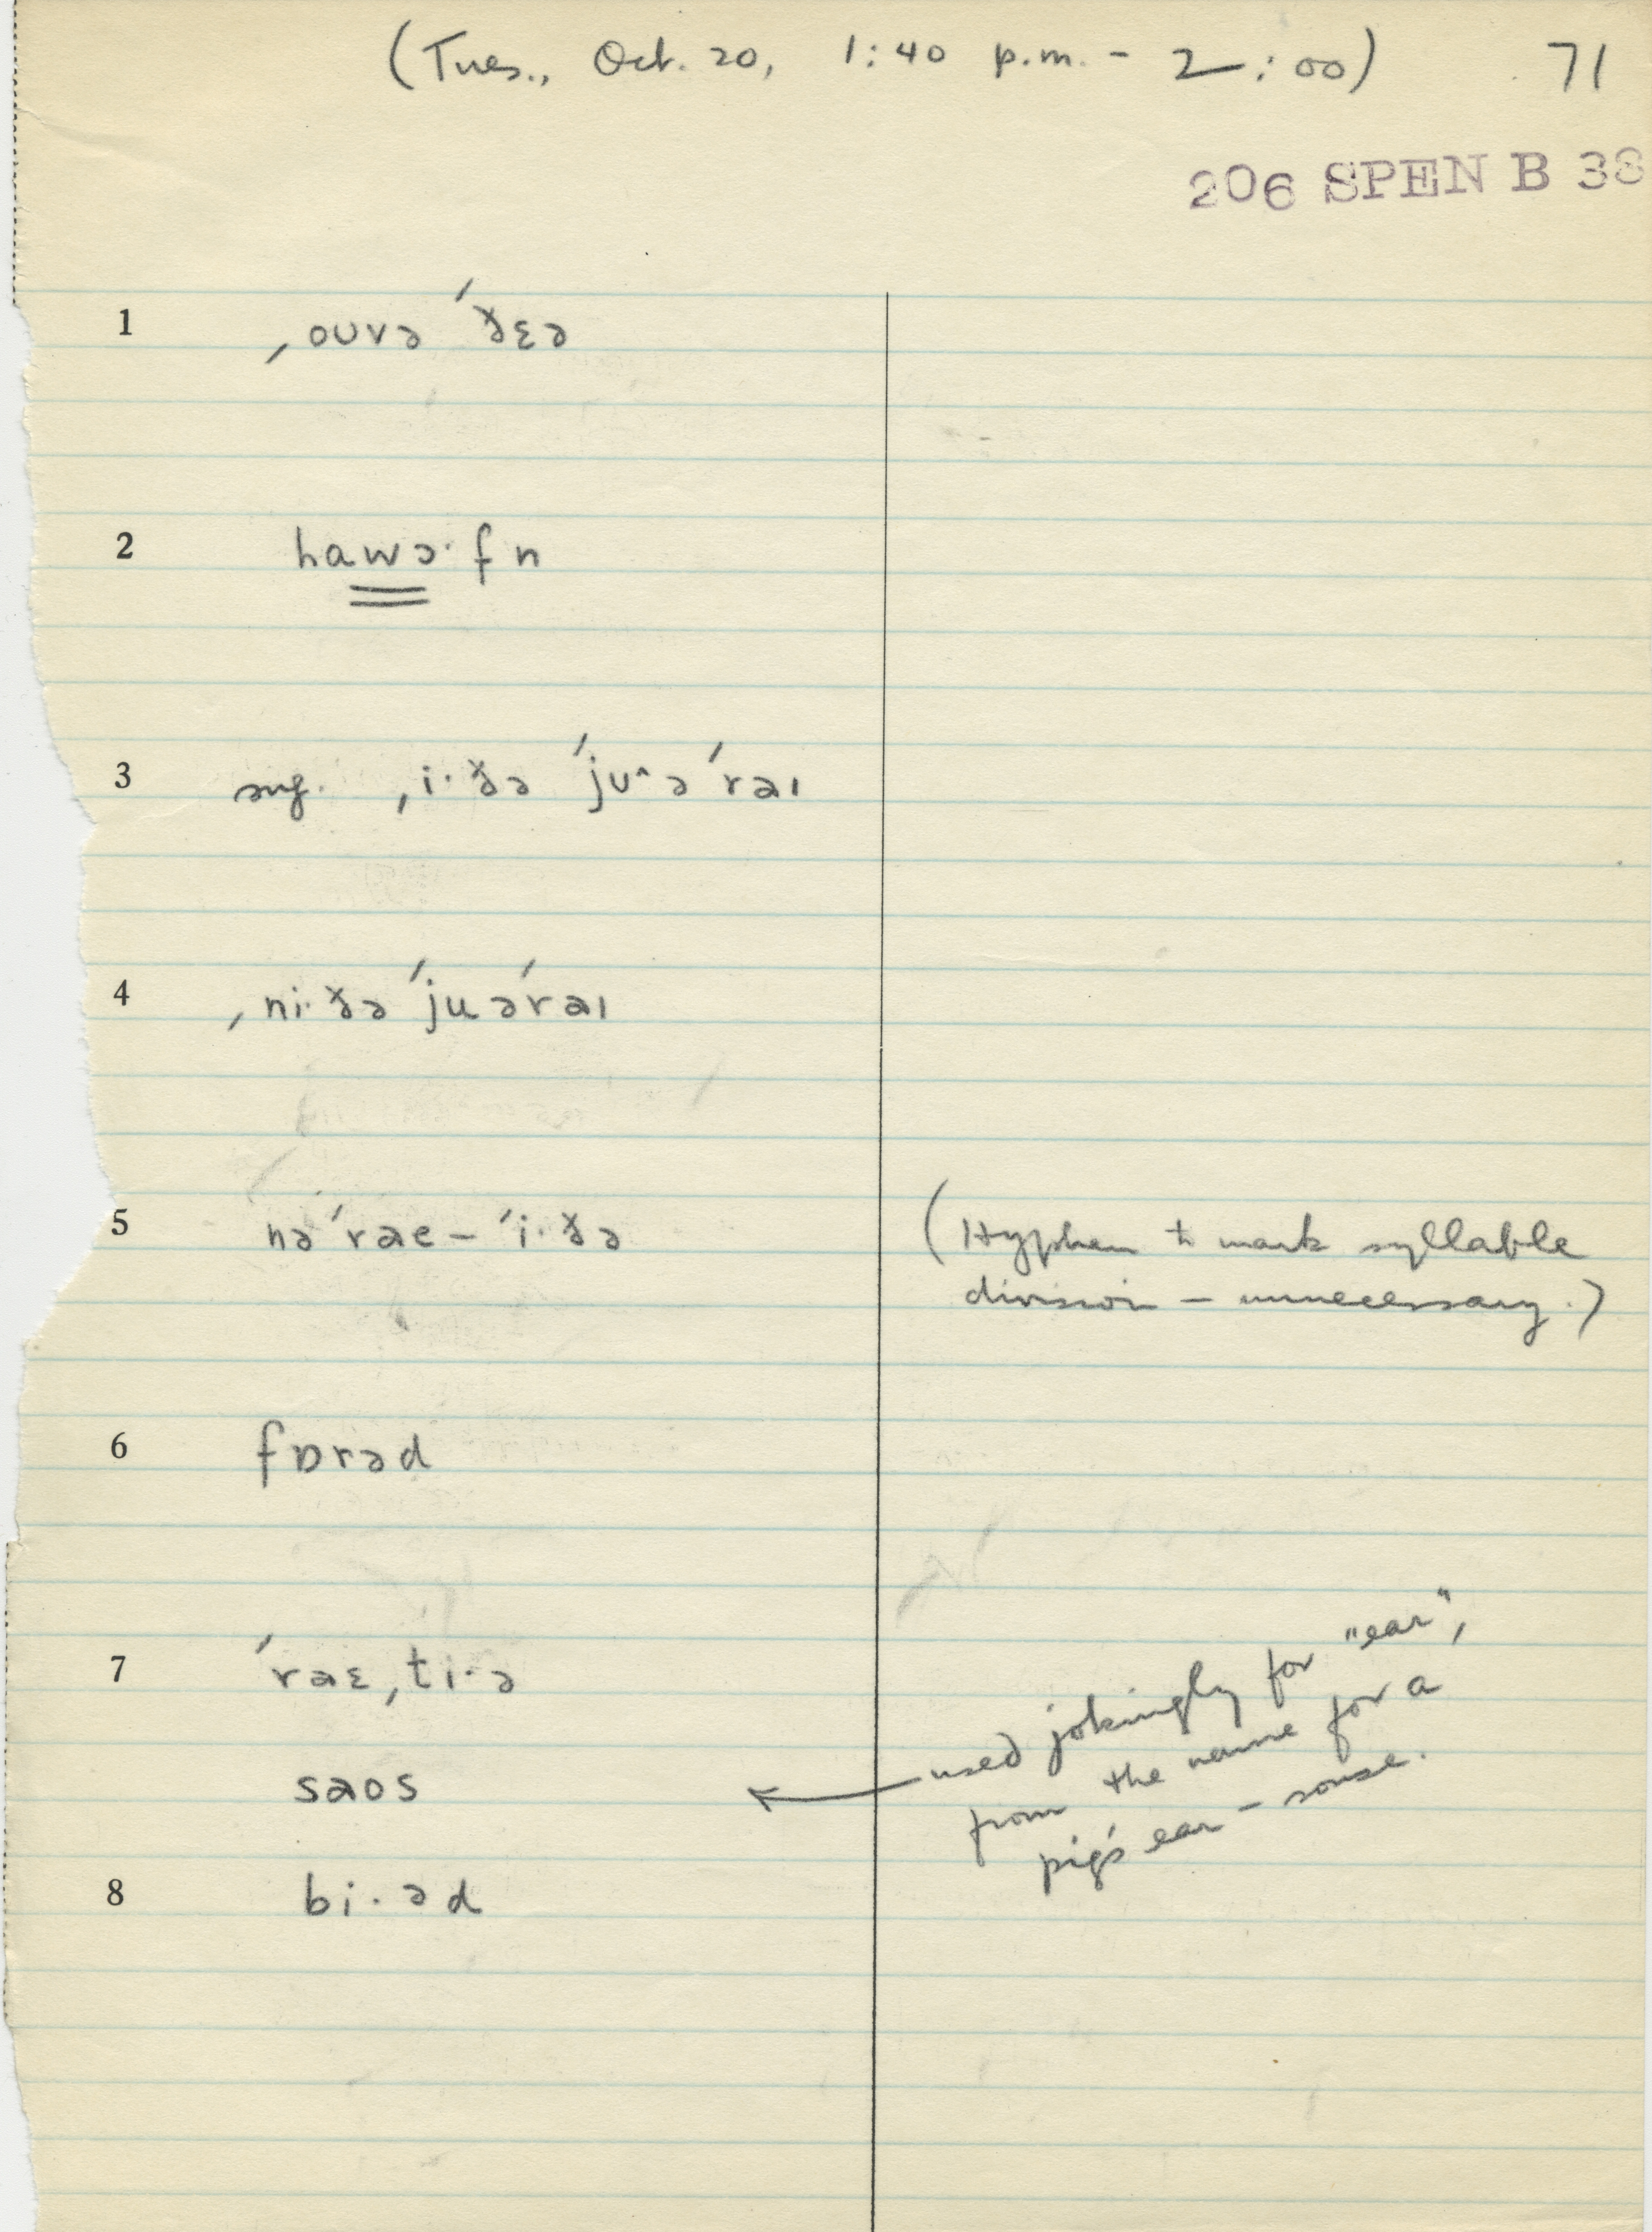 (Tues., Oct. 20, 1:40 p.m. - 2:00) 71
206 SPEN B 38
1 ˌoʊvə ˈðɛə
2 hawɔ·fn
3 sug. ˌi·ðə ˈjuˆə ˈraɪ
4 ˌni·ðə ˈjuəˈraɪ
5 nəˈrae-ˈi·ðə (Hyphen to mark syllable
division - unnecessary.)
6 fɒrəd
7 ˈraɛˌtɪ·ə used jokingly for "ear",
saos ← from the name for a
pig's ear - souse.
8 bi·əd